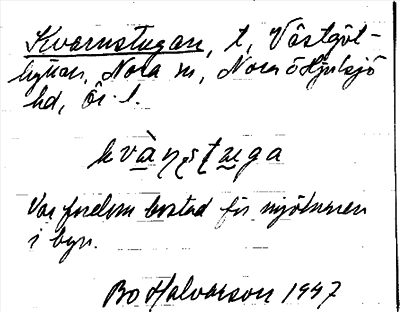 Kvarnstugan, t, Västgöt-
byttan, Nora sn, Nora o Hjulsjö
hd, Ör. l.
kvàṇṣṭu̲ga
Var fordom bostad för mjölnaren
i byn.
Bo Halvarson 1947